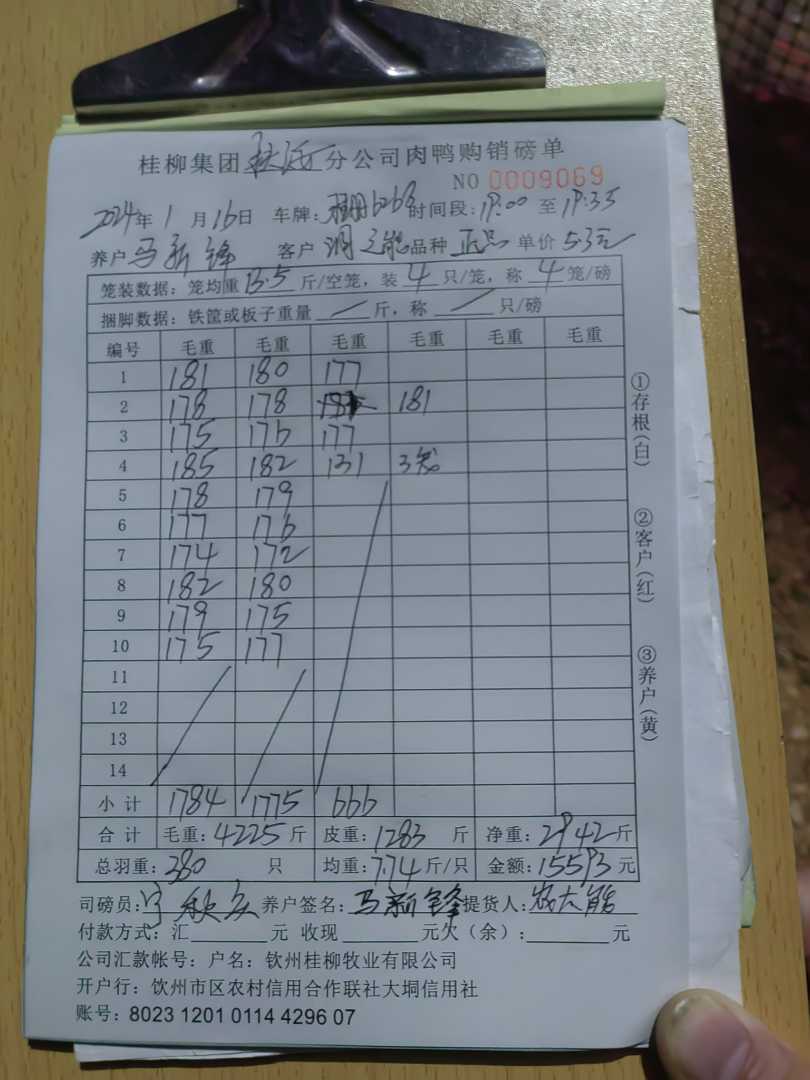 桂柳集团钦海分公司肉鸭购销磅单
NO 0009069
2024年1月16日 车牌: 时间段:19:00 至19:35
养户马新锋 客户 品种 正品 单价5.3元
笼装数据:笼均重13.5斤/空笼,装4只/笼,称4笼/磅
捆脚数据:铁筐或板子重量/斤,称/只/磅
编号 毛重 毛重 毛重 毛重 毛重 毛重
1 181 180 177
2 178 178 181
3 175 176 177
4 185 182 131 3笼
5 178 179
6 177 176
7 174 172
8 182 180
9 179 175
10 175 177
11
12
13
14
小计 1784 1775 666
合计 毛重:4225斤 皮重:1283斤 净重:2942斤
总羽重:380只 均重:7.74斤/只 金额:15593元
司磅员: 养户签名:马新锋 提货人:
付款方式:汇 元 收现 元欠(余): 元
公司汇款帐号:户名:钦州桂柳牧业有限公司
开户行:饮州市区农村信用合作联社大垌信用社
账号:8023 1201 0114 4296 07
①存根(白)
②客户(红)
③养户(黄)